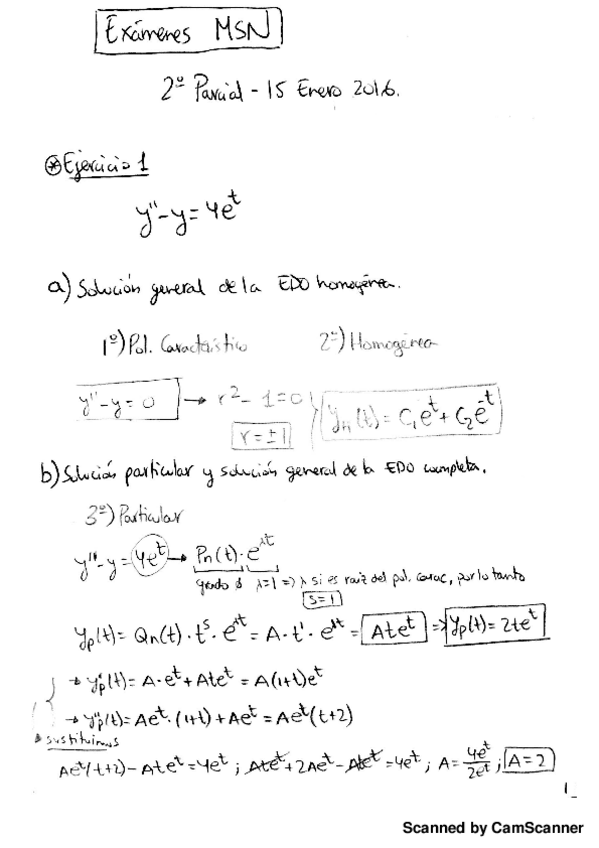 Exámenes MSN
2º Parcial - 15 Enero 2016.
⊛ Ejercicio 1
y''-y=4e^t
a) Solución general de la EDO homogénea.
1º) Pol. Característico 2º) Homogénea
y''-y=0 → r²-1=0 } y_h(t)=C₁e^t+C₂e^-t
r=±1
b) Solución particular y solución general de la EDO completa.
3º) Particular
y''-y=4e^t → Pn(t)·e^λt
grado 0 λ=1 => λ si es raiz del pol. carac, por lo tanto
s=1
y_p(t)=Qn(t)·t^s·e^λt=A·t¹·e^1t=Ate^t => y_p(t)=2te^t
→ y'_p(t)=A·e^t+Ate^t=A(1+t)e^t
→ y''_p(t)=Ae^t·(1+t)+Ae^t=Ae^t(t+2)
sustituimos
Ae^t(t+2)-Ate^t=4e^t; Ate^t+2Ae^t-Ate^t=4e^t; A=4e^t/2e^t; A=2
1_
Scanned by CamScanner